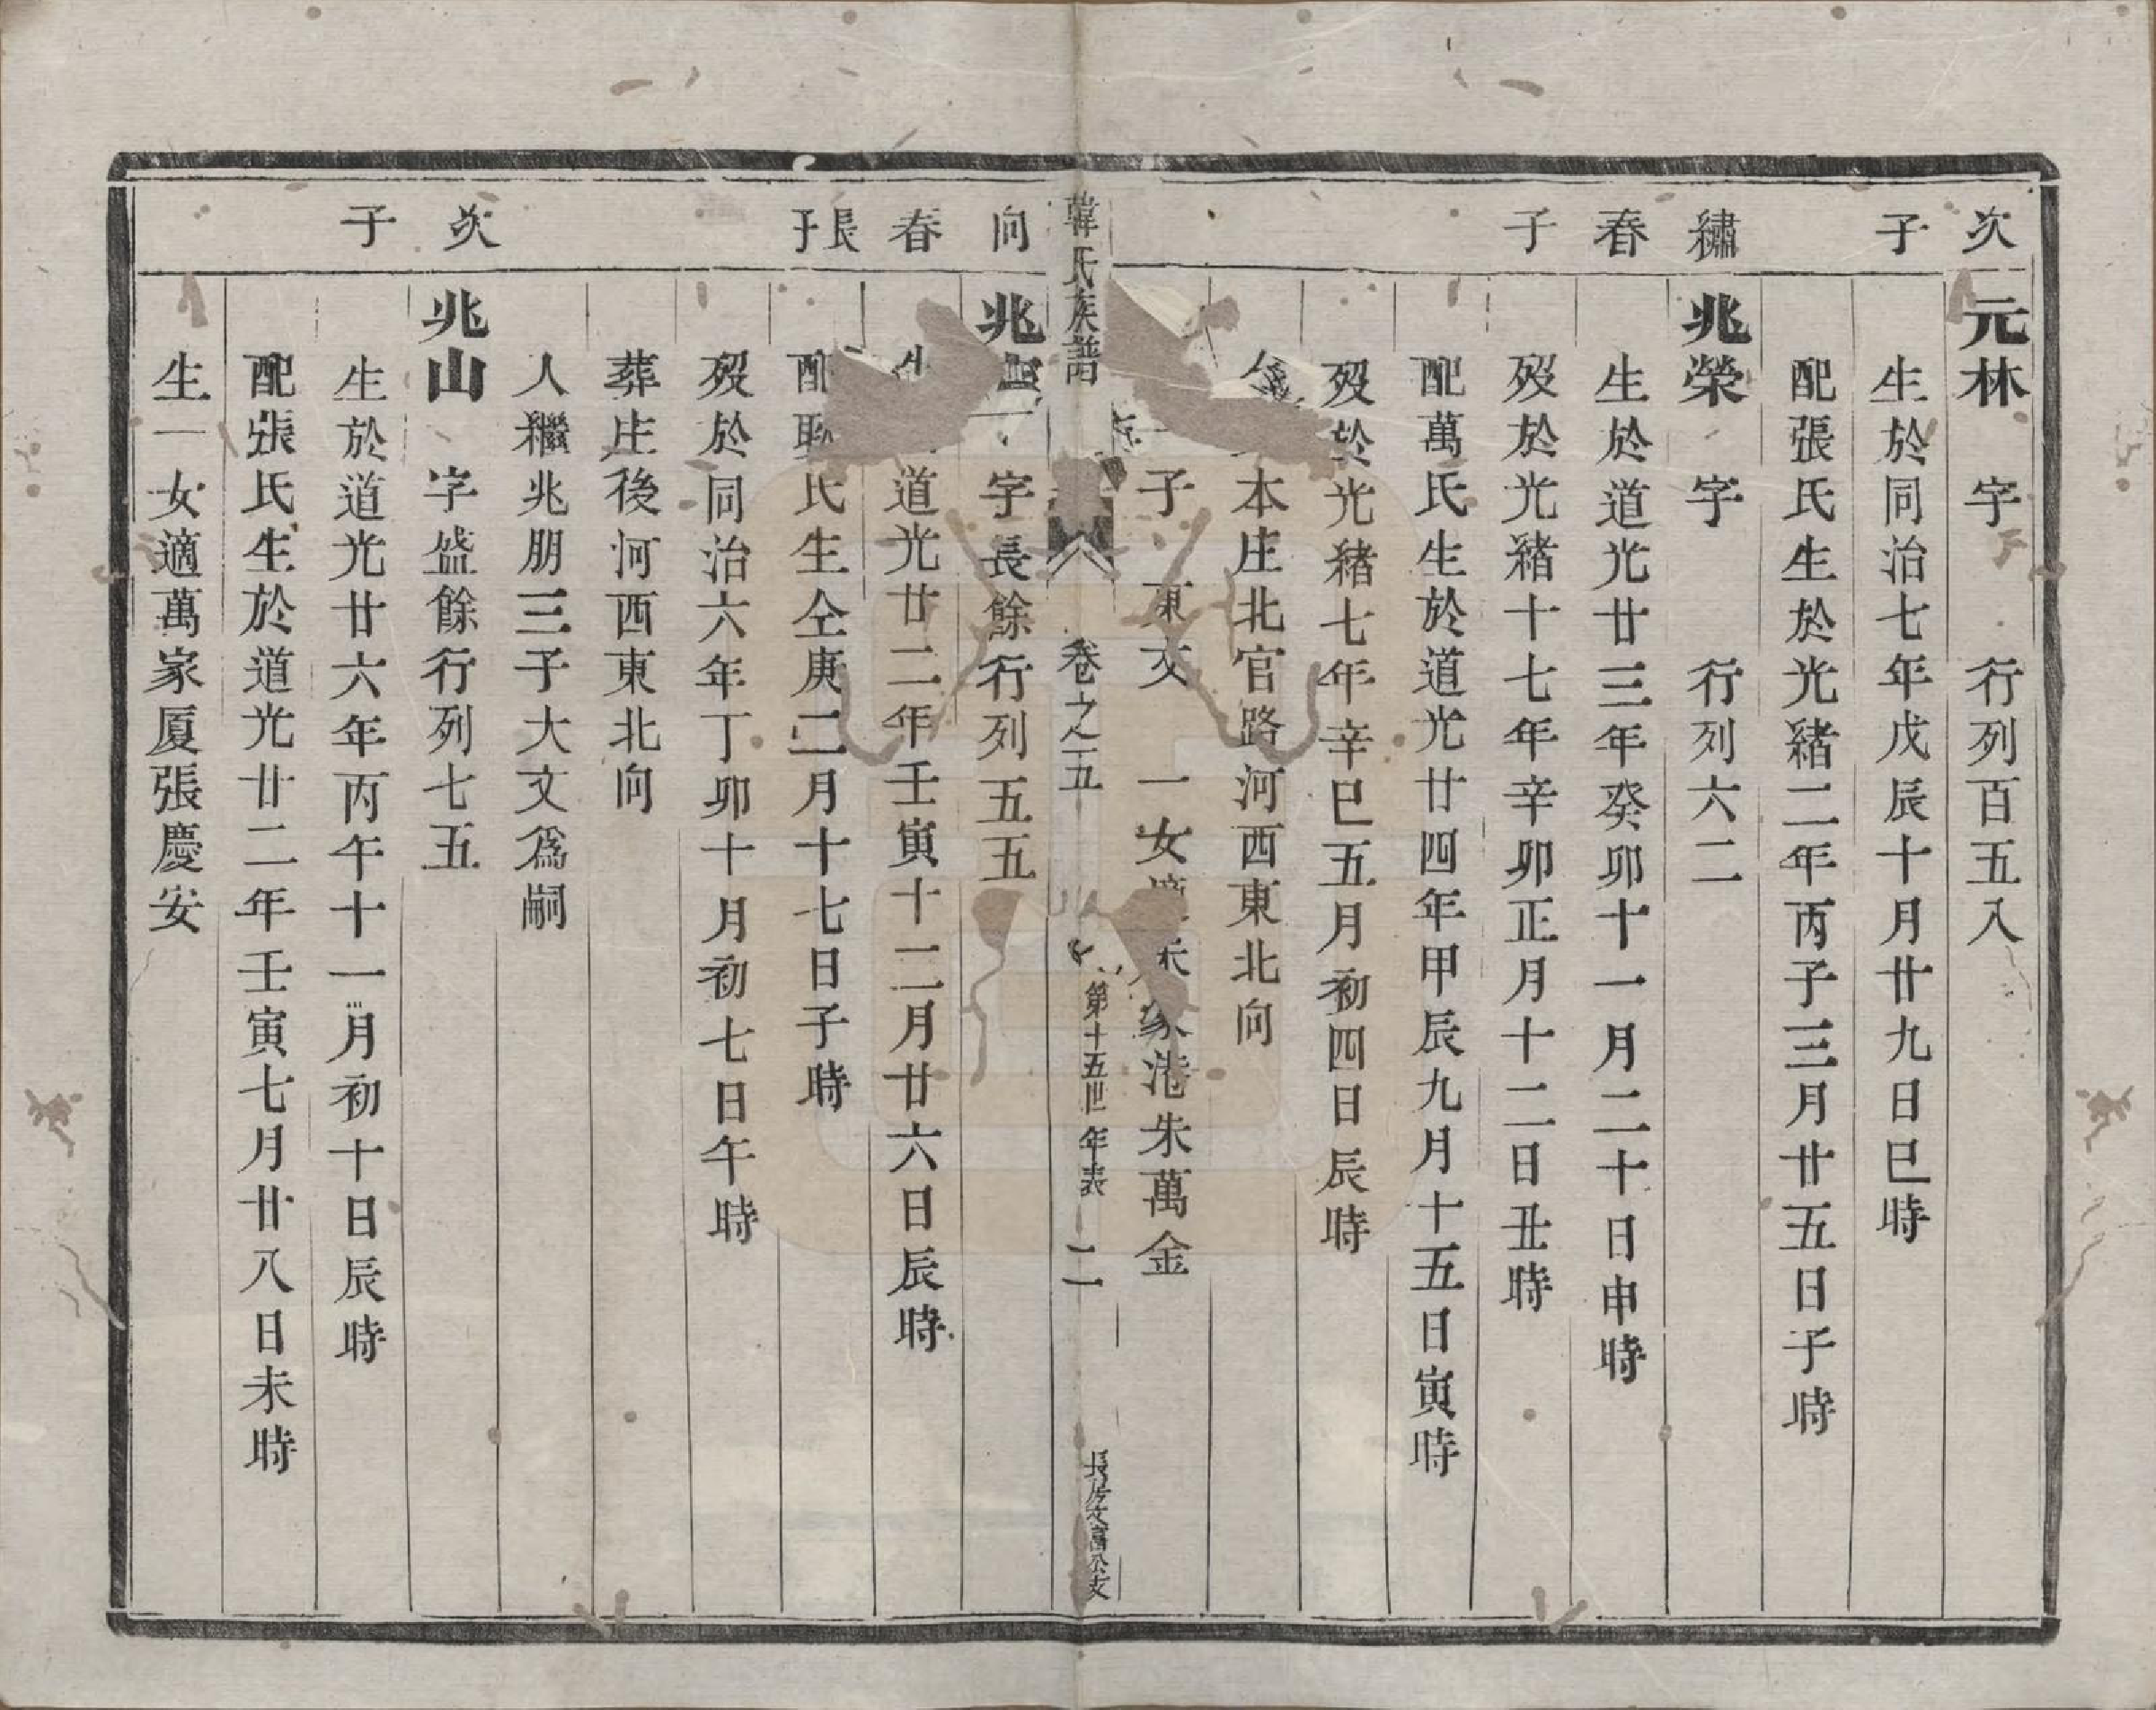 次子
元林　字　　行列百五八
生於同治七年戊辰十月廿九日巳時
配張氏生於光緒二年丙子三月廿五日子時
繡春子
兆榮　字　　行列六二
生於道光廿三年癸卯十一月二十日申時
歿於光緒十七年辛卯正月十二日丑時
配萬氏生於道光廿四年甲辰九月十五日寅時
歿於光緒七年辛巳五月初四日辰時
本庄北官路河西東北向
子　東文　一女　家港朱萬金
韓氏族譜　卷之五　第十五世年表　二　長房文富公支
向春長子
兆　字長餘行列五五
道光廿二年壬寅十二月廿六日辰時
配耿氏生仝庚二月十七日子時
歿於同治六年丁卯十月初七日午時
葬庄後河西東北向
人繼兆朋三子大文爲嗣
次子
兆山　字盛餘行列七五
生於道光廿六年丙午十一月初十日辰時
配張氏生於道光廿二年壬寅七月廿八日未時
生一女適萬家厦張慶安